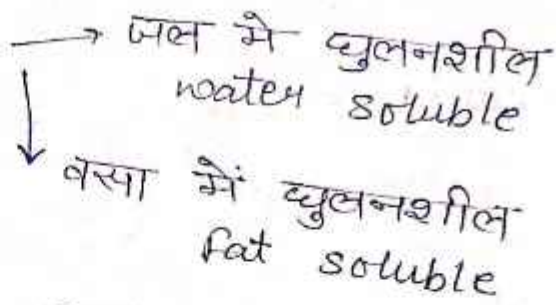 → जल मे घुलनशील
water soluble
↓ वसा में घुलनशील
fat soluble